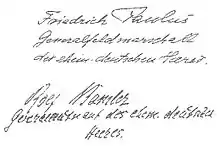 Friedrich Paulus
Generalfeldmarschall
der ehem. deutschen Heeres.
Generalleutnant auf des ehem. deutschen
Heeres.